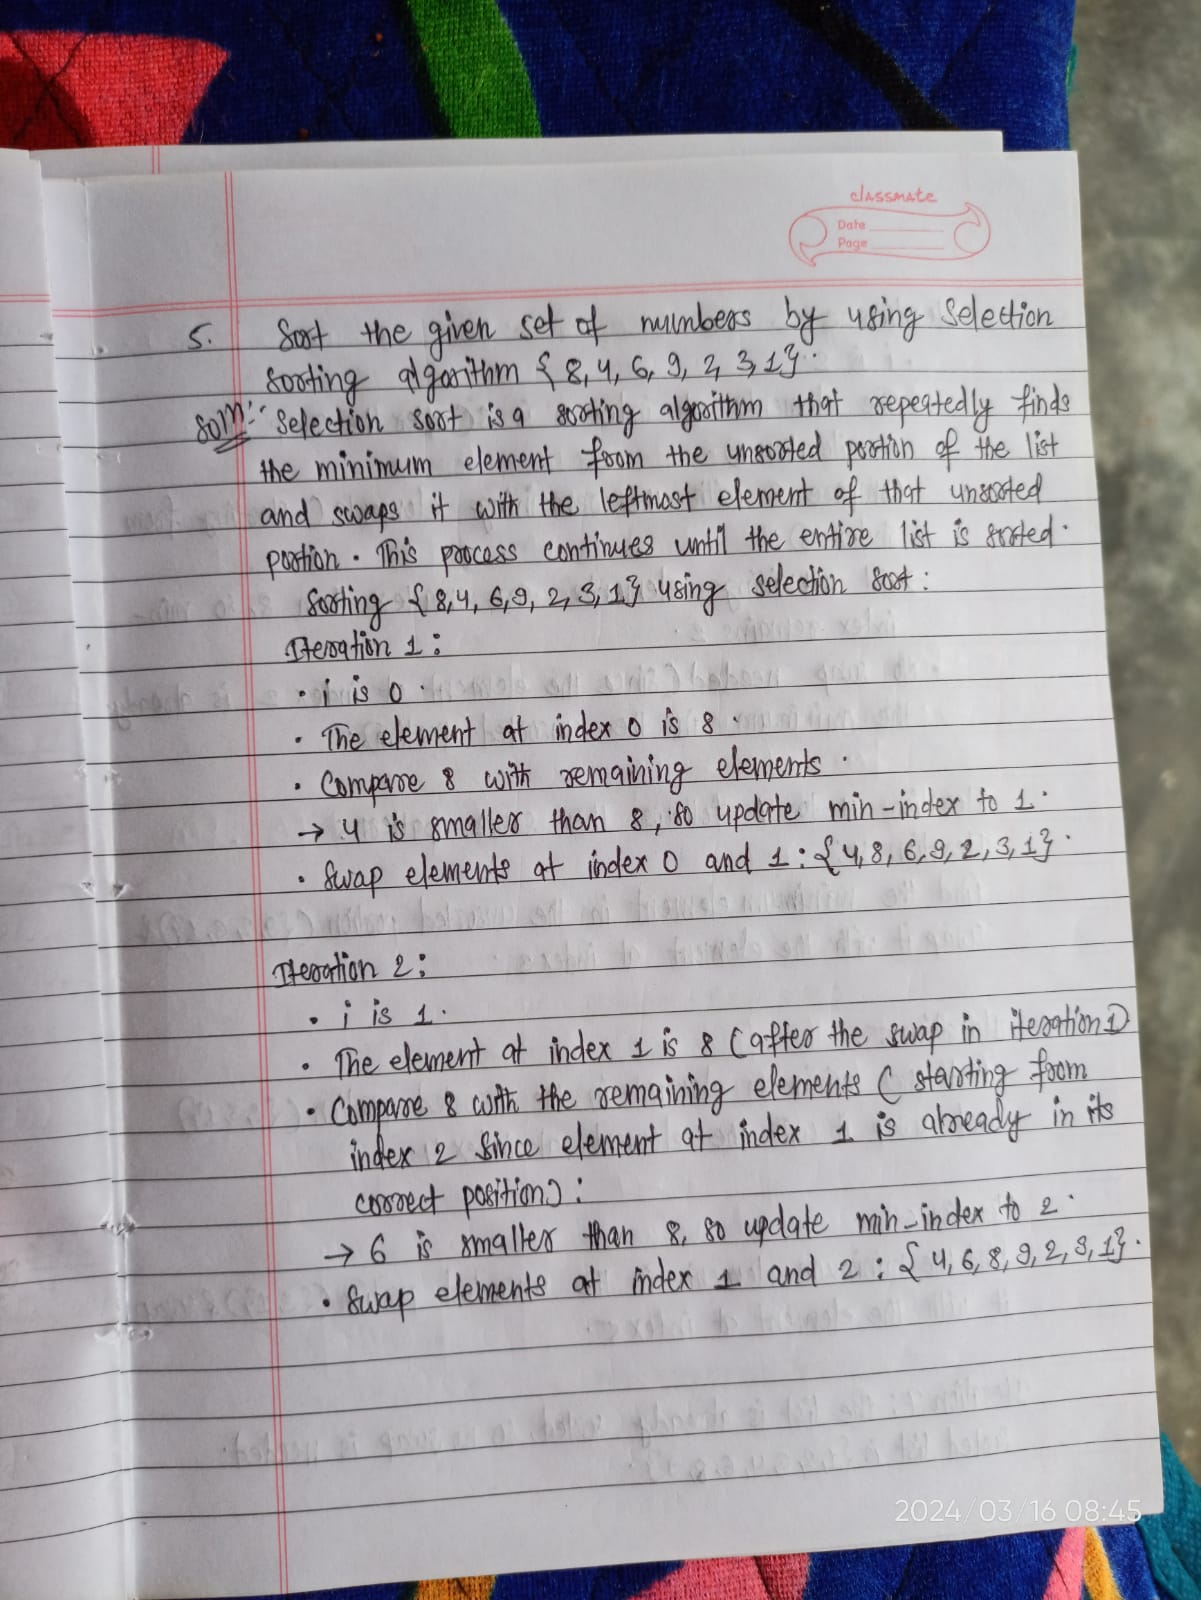 classmate
Date
Page
5. Sort the given set of numbers by using Selection
sorting algorithm { 8, 4, 6, 9, 2, 3, 1}.
Soln:- Selection sort is a sorting algorithm that repeatedly finds
the minimum element from the unsorted portion of the list
and swaps it with the leftmost element of that unsorted
portion. This process continues until the entire list is sorted.
Sorting { 8, 4, 6, 9, 2, 3, 1} using selection sort :
Iteration 1 :
• i is 0.
• The element at index 0 is 8.
• Compare 8 with remaining elements.
→ 4 is smaller than 8, so update min-index to 1.
• Swap elements at index 0 and 1 : { 4, 8, 6, 9, 2, 3, 1}.
Iteration 2 :
• i is 1.
• The element at index 1 is 8 (after the swap in iteration 1)
• Compare 8 with the remaining elements ( starting from
index 2 since element at index 1 is already in its
correct position) :
→ 6 is smaller than 8, so update min-index to 2.
• Swap elements at index 1 and 2 : { 4, 6, 8, 9, 2, 3, 1}.
2024/03/16 08:45